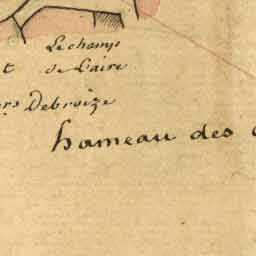 Le champ
t de l'aire
ers Debroize
hameau des